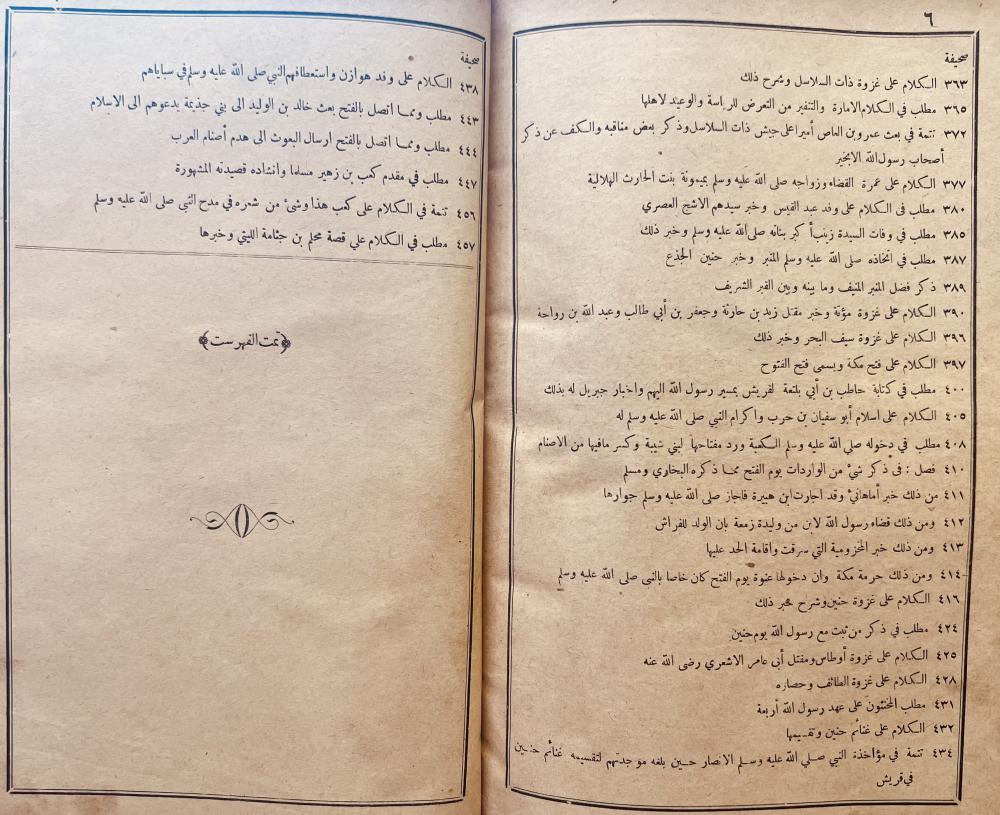 ٦
صحيفة
٣٦٣ الكلام على غزوة ذات السلاسل وشرح ذلك
٣٦٥ مطلب في الكلام الامارة والتنفير من التعرض للرياسة والوعيد لاهلها
٣٧٢ تتمة في بعث عمرو بن العاص أميرا على جيش ذات السلاسل وذكر بعض مناقبه والكف عن ذكر
أصحاب رسول الله الا بخير
٣٧٧ الكلام على عمرة القضاء وزواجه صلى الله عليه وسلم بميمونة بنت الحارث الهلالية
٣٨٠ مطلب فى الكلام على وفد عبد القيس وخبر سيدهم الاشج العصري
٣٨٥ مطلب في وفات السيدة زينب أكبر بناته صلى الله عليه وسلم وخبر ذلك
٣٨٧ مطلب في اتخاذه صلى الله عليه وسلم المنبر وخبر حنين الجذع
٣٨٩ ذكر فضل المنبر المنيف وما بينه وبين القبر الشريف
٣٩٠ الكلام على غزوة مؤتة وخبر مقتل زيد بن حارثة وجعفر بن أبي طالب وعبد الله بن رواحة
٣٩٦ الكلام على غزوة سيف البحر وخبر ذلك
٣٩٧ الكلام على فتح مكة ويسمى فتح الفتوح
٤٠٠ مطلب في كتابة حاطب بن أبي بلتعة لقريش بمسير رسول الله اليهم واخبار جبريل له بذلك
٤٠٥ الكلام على اسلام أبو سفيان بن حرب واكرام النبي صلى الله عليه وسلم له
٤٠٨ مطلب في دخوله صلى الله عليه وسلم الكعبة ورد مفتاحها لبني شيبة وكسر مافيها من الاصنام
٤١٠ فصل : فى ذكر شئ من الواردات يوم الفتح مما ذكره البخاري ومسلم
٤١١ من ذلك خبر أم هانئ وقد اجارت ابن هبيرة فاجاز صلى الله عليه وسلم جوارها
٤١٢ ومن ذلك قضاء رسول الله لابن من وليدة زمعة بان الولد للفراش
٤١٣ ومن ذلك خبر المخزومية التي سرقت واقامة الحد عليها
٤١٤ ومن ذلك حرمة مكة وان دخولها عنوة يوم الفتح كان خاصا بالنبي صلى الله عليه وسلم
٤١٦ الكلام على غزوة حنين وشرح خبر ذلك
٤٢٤ مطلب في ذكر من ثبت مع رسول الله يوم حنين
٤٢٥ الكلام على غزوة أوطاس ومقتل أبى عامر الاشعري رضى الله عنه
٤٢٨ الكلام على غزوة الطائف وحصاره
٤٣١ مطلب المخنثون على عهد رسول الله أربعة
٤٣٢ الكلام على غنائم حنين وتقسيمها
٤٣٤ تتمة في مؤاخذة النبي صلي الله عليه وسلم الانصار حين بلغه موجدتهم لتقسيمه غنائم حنين
في قريش
صحيفة
٤٣٨ الكلام على وفد هوازن واستعطافهم النبي صلى الله عليه وسلم في سباياهم
٤٤٣ مطلب ومما اتصل بالفتح بعث خالد بن الوليد الى بني جذيمة يدعوهم الى الاسلام
٤٤٤ مطلب ومما اتصل بالفتح ارسال البعوث الى هدم أصنام العرب
٤٤٧ مطلب في مقدم كعب بن زهير مسلما وانشاده قصيدته المشهورة
٤٥٦ تتمة في الكلام على كعب هذا وشئ من شعره في مدح النبي صلى الله عليه وسلم
٤٥٧ مطلب في الكلام علي قصة محلم بن جثامة الليثي وخبرها
﴿تمت الفهرست﴾